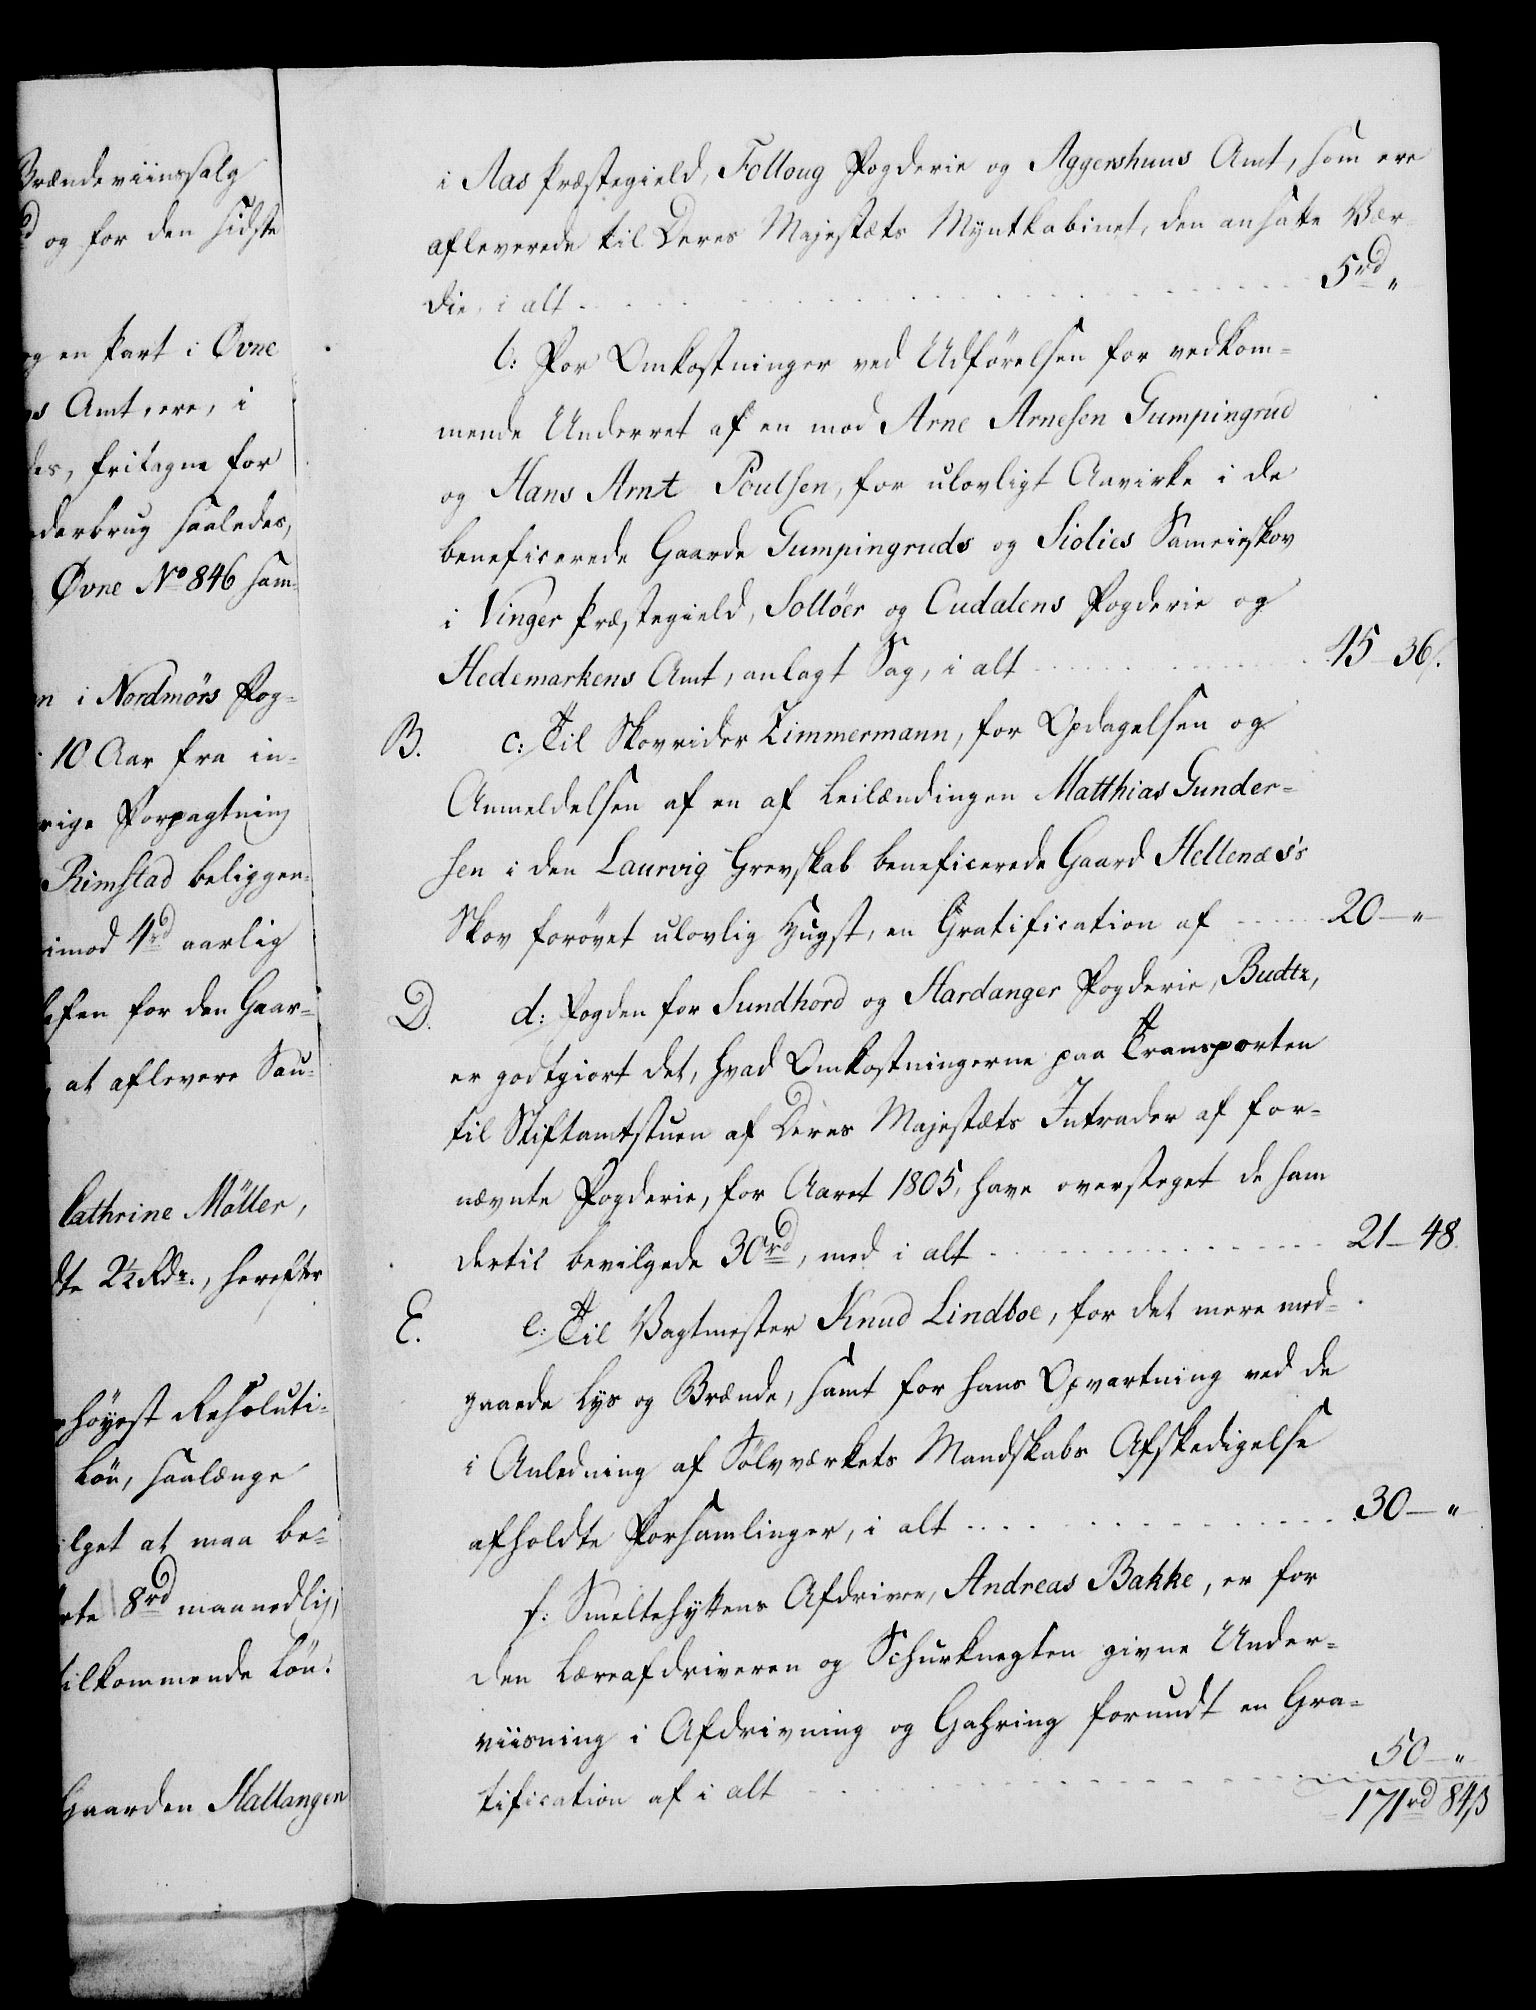 Brændeviinssalg
og for den sidste
og en Part i Ovne
s Amt, ere, i
des, fritagne for
derbrug saaledes,
Øvne No 846 sam-
n i Nordmörs Fog-
10 Aar fra in-
rige Forpagtning
Rimstad beliggen-
imod 4rd aarlig
sen for den Gaar-
at aflevere Sau-
Cathrine Möller,
dte 2½ Rdr., herefter
höyest Resoluti-
Lön, saalænge
ilget at maa be-
rte 8rd maanedlig,
tilkommende Lön.
Gaarden Hallangen
i Aas Præstegield, Folloug Fogderie og Aggershuus Amt, som ere
afleverede til Deres Majestæts Myntkabinet, den ansatte Vær-
die, i alt 5rd "
b: For Omkostninger ved Udförelsen for vedkom-
mende Underret af en mod Arne Arnesen Gumpingrud
og Hans Arnt Poulsen, for ulovligt Anvirke i de
beneficerede Gaarde Gumpingruds og Siolies Sameieskov
i Vinger Præstegield, Solløer og Oudalens Fogderie og
Hedemarkens Amt, anlagt Sag, i alt 45 – 36.
B. c: Til Skovrider Zimmermann, for Opdagelsen og
Anmeldelsen af en af Leilændingen Matthias Gunder-
sen i den Laurvig Grevskab beneficerede Gaard Hellenæs's
Skov forövet ulovlig Hugst, en Gratification af 20 – "
D. d: Fogden for Sundhord og Hardanger Fogderie, Budtz,
er godtgiort det, hvad Omkostningerne paa Transporten
til Stiftamtstuen af Deres Majestæts Intrader af for-
nævnte Fogderie, for Aaret 1805, have oversteget de ham
dertil bevilgede 30rd, med i alt 21 – 48.
E. e: Til Vagtmester Knud Lindboe, for det mere med-
gaaede Lys og Brænde, samt for hans Opvartning ved de
i Anledning af Sölvværkets Mandskabs Afskedigelse
afholdte Forsamlinger, i alt 30 – "
f: Smeltehyttens Afdriver, Andreas Bakke, er for
den Læreafdriveren og Schurknegten givne Under-
viisning i Afdrivning og Gahring forundt en Gra-
tification af i alt 50 – "
171rd 84ß